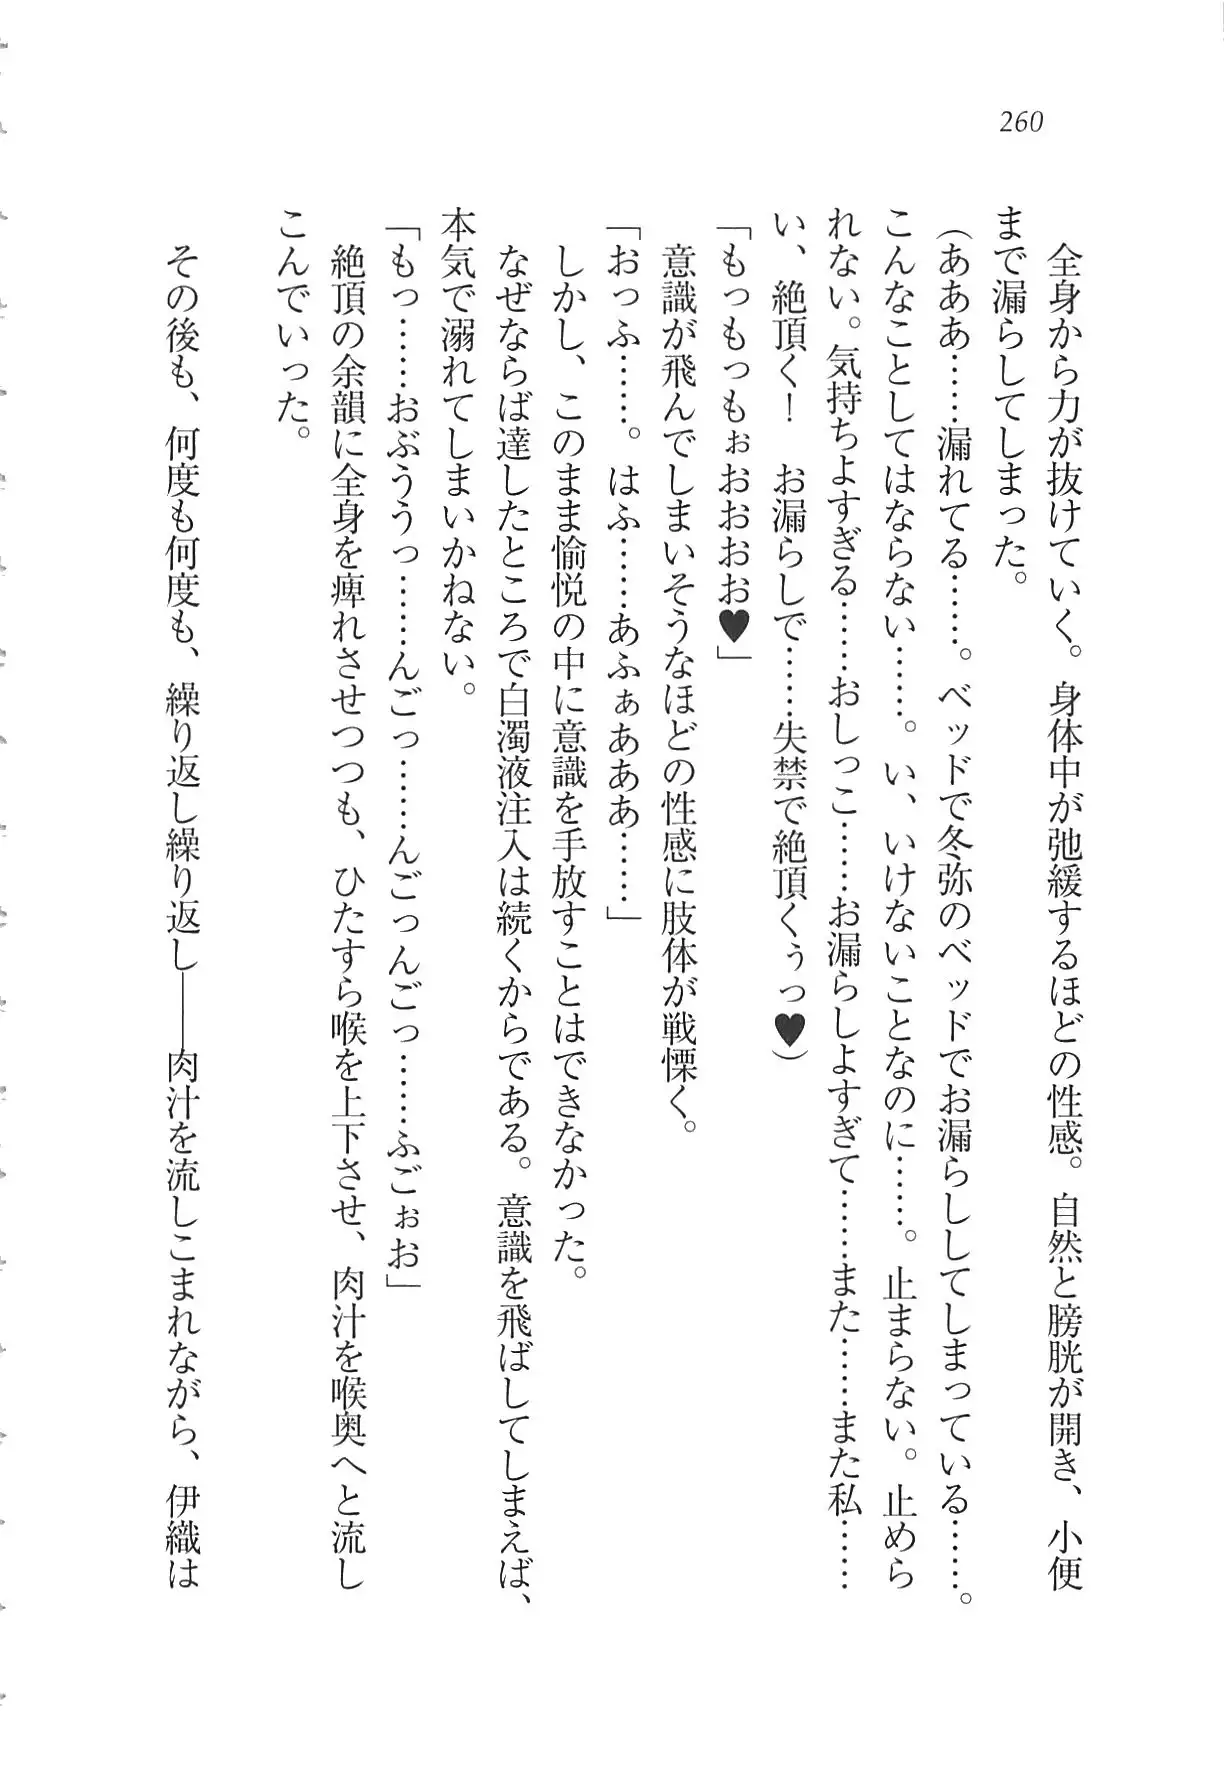 260
全身から力が抜けていく。身体中が弛緩するほどの性感。自然と膀胱が開き、小便
まで漏らしてしまった。
（あああ……漏れてる……。ベッドで冬弥のベッドでお漏らししてしまっている……。
こんなことしてはならない……。い、いけないことなのに……。止まらない。止めら
れない。気持ちよすぎる……おしっこ……お漏らしよすぎて……また……また私……
い、絶頂く！　お漏らしで……失禁で絶頂くぅっ♥）
「もっもっもぉおおおお♥」
意識が飛んでしまいそうなほどの性感に肢体が戦慄く。
「おっふ……。はふ……あふぁあああ……」
しかし、このまま愉悦の中に意識を手放すことはできなかった。
なぜならば達したところで白濁液注入は続くからである。意識を飛ばしてしまえば、
本気で溺れてしまいかねない。
「もっ……おぶううっ……んごっ……んごっんごっ……ふごぉお」
絶頂の余韻に全身を痺れさせつつも、ひたすら喉を上下させ、肉汁を喉奥へと流し
こんでいった。
その後も、何度も何度も、繰り返し繰り返し――肉汁を流しこまれながら、伊織は